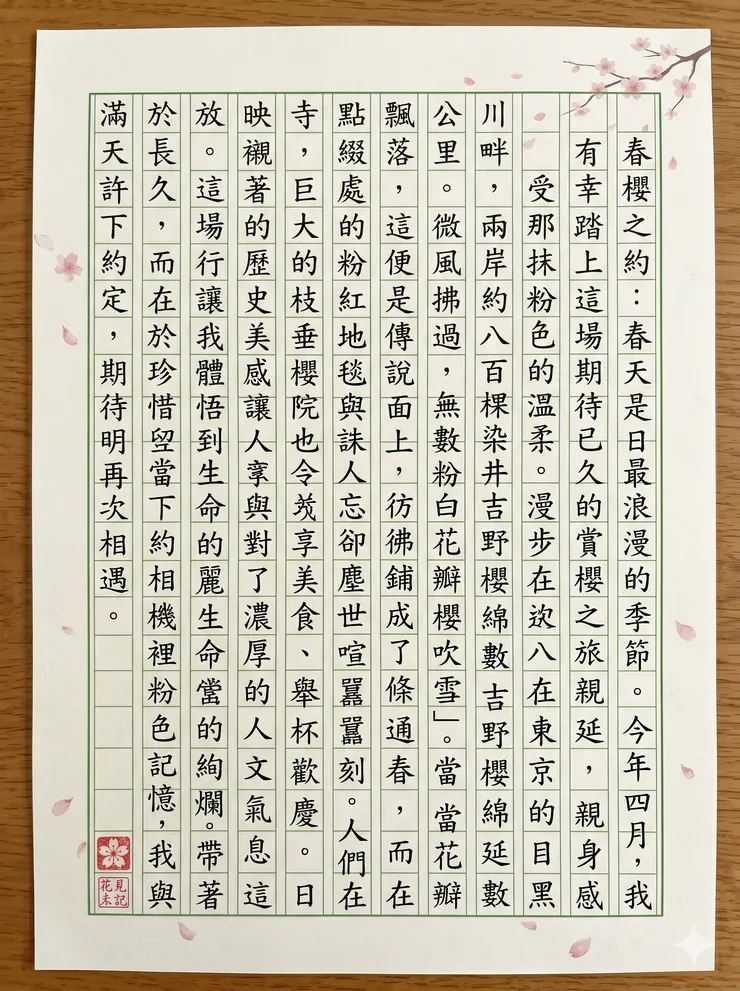 春櫻之約：春天是日最浪漫的季節。今年四月，我
有幸踏上這場期待已久的賞櫻之旅親延，親身感
受那抹粉色的溫柔。漫步在欻八在東京的目黑
川畔，兩岸約八百棵染井吉野櫻綿數吉野櫻綿延數
公里。微風拂過，無數粉白花瓣櫻吹雪」。當當花瓣
飄落，這便是傳說面上，彷彿鋪成了條通春，而在
點綴處的粉紅地毯與誅人忘卻塵世喧囂囂刻。人們在
寺，巨大的枝垂櫻院也令享美食、舉杯歡慶。日
映襯著的歷史美感讓人享與對了濃厚的人文氣息這
放。這場行讓我體悟到生命的麗生命當的絢爛。帶著
於長久，而在於珍惜當下約相機裡粉色記憶，我與
滿天許下約定，期待明再次相遇。
花見未記